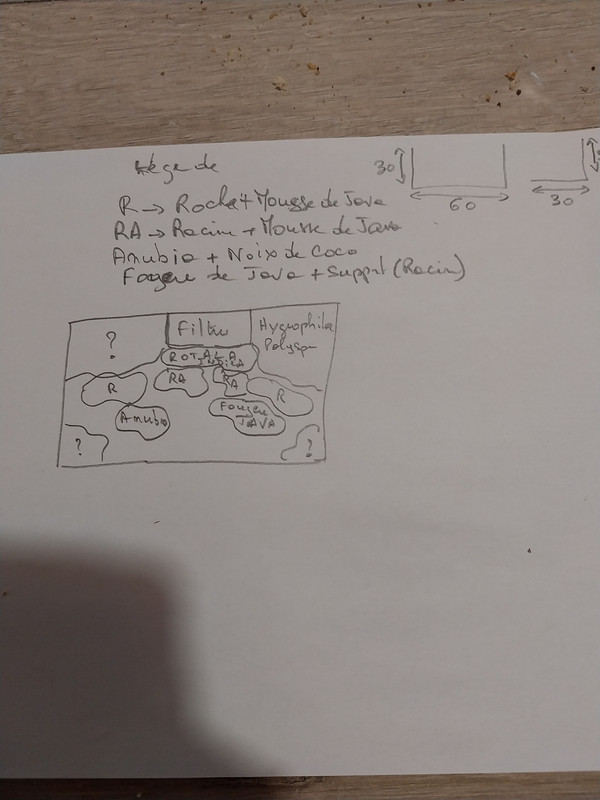 Légende
30
60
30
R → Roche + Mousse de Java
RA → Racine + Mousse de Java
Anubia + Noix de Coco
Fougere de Java + Support (Racin)
?
Filtre
Hygrophila
Polysper
ROTALA
INDICA
R
RA
RA
R
Anubia
Fougere
JAVA
?
?